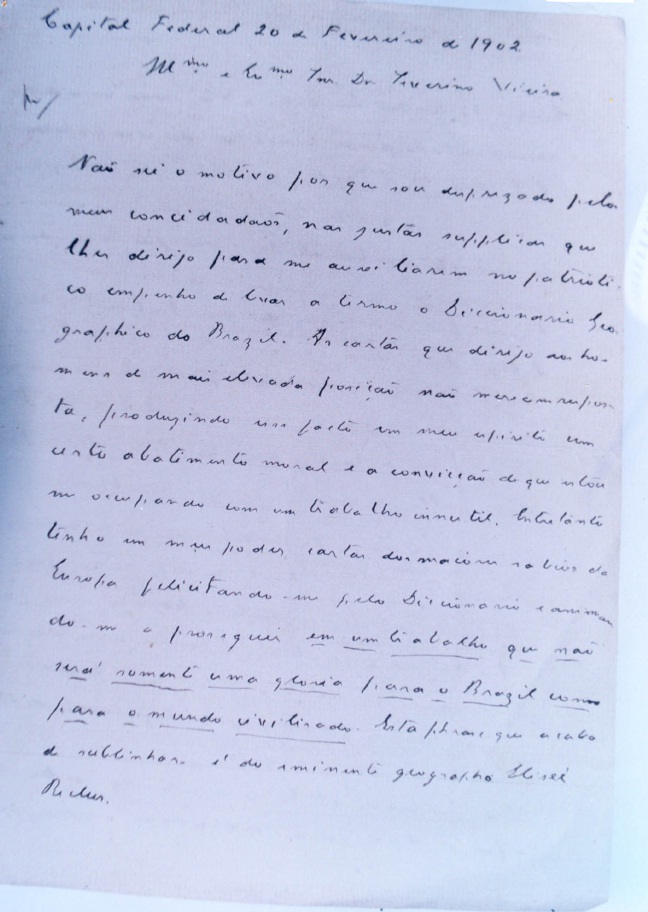 Capital Federal 20 de Fevereiro de 1902
Illmo e Exmo Snr. Dr. Severino Vieira
Não sei o motivo por que sou desprezado pelos
meus concidadaõs, nas justas supplicas que
lhes dirijo para me auxiliarem no patrioti-
co empenho de levar a termo o Diccionario Geo-
graphico do Brazil. As cartas que dirijo aos ho-
mens de mais elevada posição não merecem respos-
ta, produzindo esse facto em meu espirito um
certo abatimento moral e a convicção de que estou
me occupando com um trabalho innutil. Entretanto
tenho em meu poder cartas dos maiores sabios da
Europa felicitando-me pelo Diccionario e animan-
do-me a proseguir em um trabalho que não
será somente uma gloria para o Brazil como
para o mundo civilisado. Esta phrase que acabo
de sublinhar é do eminente geographo Eliseé
Reclus.